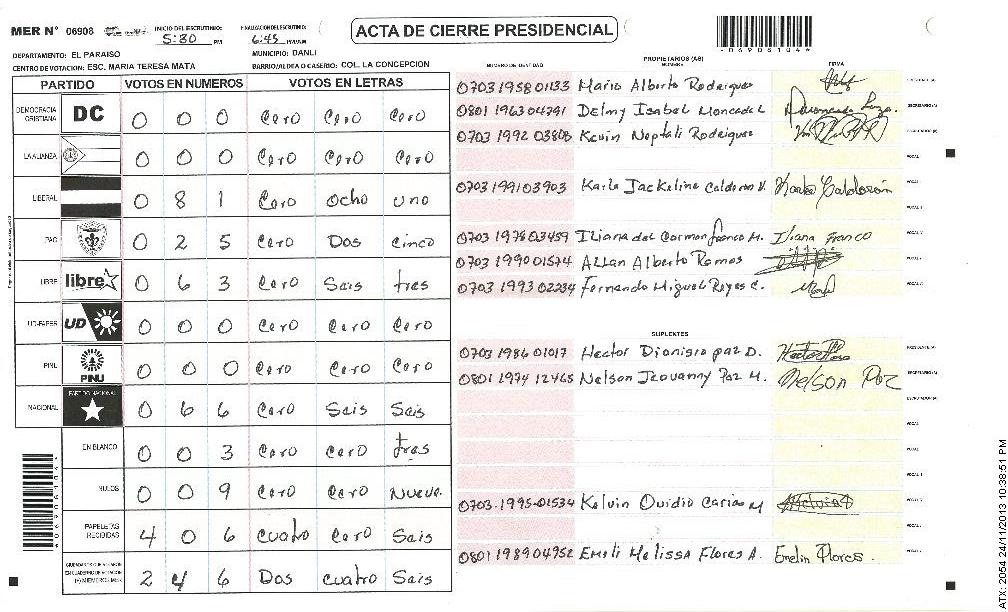 MER N° 06908
INICIO DEL ESCRUTINIO: 5:30 PM
FINALIZACION DEL ESCRUTINIO: 6:45
ACTA DE CIERRE PRESIDENCIAL
*069081044*
DEPARTAMENTO: EL PARAISO
MUNICIPIO: DANLI
CENTRO DE VOTACION: ESC. MARIA TERESA MATA
BARRIO/ALDEA O CASERIO: COL. LA CONCEPCION
PARTIDO VOTOS EN NUMEROS VOTOS EN LETRAS
DEMOCRACIA CRISTIANA DC 0 0 0 Cero Cero Cero
LA ALIANZA 0 0 0 Cero Cero Cero
LIBERAL 0 8 1 Cero Ocho uno
PAC 0 2 5 Cero Dos cinco
LIBRE libre 0 6 3 Cero Seis tres
UD-FAPER UD 0 0 0 Cero Cero Cero
PINU PINU 0 0 0 Cero Cero Cero
NACIONAL PARTIDO NACIONAL 0 6 6 Cero Seis Seis
EN BLANCO 0 0 3 Cero Cero tres
NULOS 0 0 9 Cero Cero Nueve.
PAPELETAS RECIBIDAS 4 0 6 cuatro Cero Seis
CIUDADANOS QUE VOTARON EN CUADERNO DE VOTACION (+) MIEMBROS MER 2 4 6 Dos cuatro Seis
PROPIETARIOS (AS)
NUMERO DE IDENTIDAD NOMBRE FIRMA
0703 1958 01133 Mario Alberto Rodriguez
0801 1963 04791 Delmy Isabel Moncada
0703 1992 03808 Kevin Neptali Rodriguez
VOCAL
0703 1991 03903 Karla Jackeline Calderon V. Karla Calderón
0703 1978 03459 Iliana del Carmen franco M. Iliana Franco
0703 1990 01574 Allan Alberto Ramos
0703 1993 02234 Fernando Miguel Reyes C.
SUPLENTES
0703 1986 01017 Hector Dionisio paz D.
0801 1974 12465 Nelson Jeovanny Paz M. Nelson Paz
0703-1995-01534 Kelvin Ovidio Carias M
0801 1989 04952 Emeli Melissa Flores A. Emelin Flores.
ATX: 2054 24/11/2013 10:38:51 PM